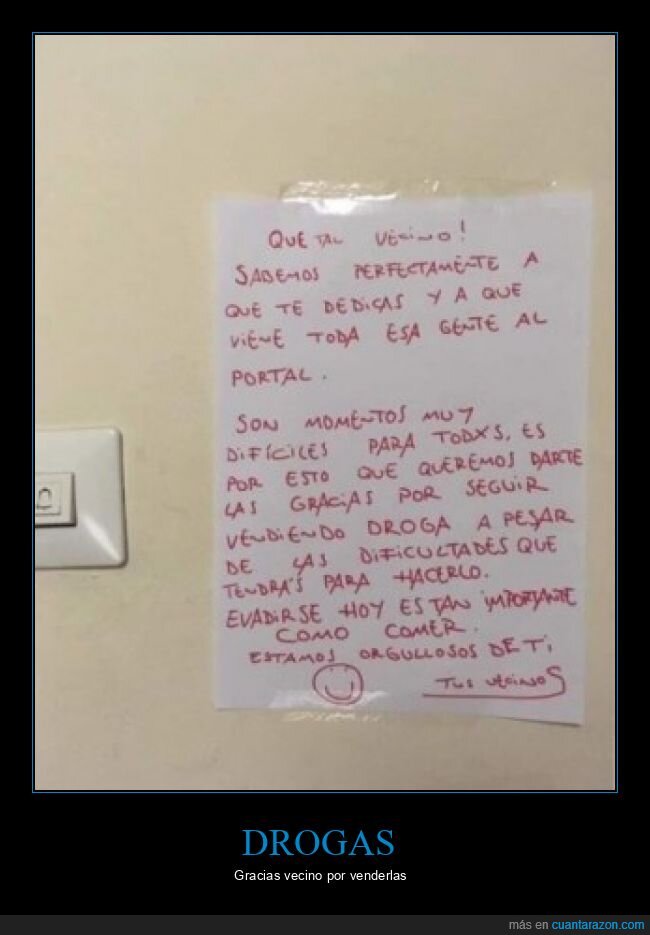 QUE TAL VECINO!
SABEMOS PERFECTAMENTE A
QUE TE DEDICAS Y A QUE
VIENE TODA ESA GENTE AL
PORTAL.
SON MOMENTOS MUY
DIFÍCILES PARA TODXS, ES
POR ESTO QUE QUEREMOS DARTE
LAS GRACIAS POR SEGUIR
VENDIENDO DROGA A PESAR
DE LAS DIFICULTADES QUE
TENDRÁS PARA HACERLO.
EVADIRSE HOY ES TAN IMPORTANTE
COMO COMER.
ESTAMOS ORGULLOSOS DE TI
TUS VECINOS
DROGAS
Gracias vecino por venderlas
más en cuantarazon.com